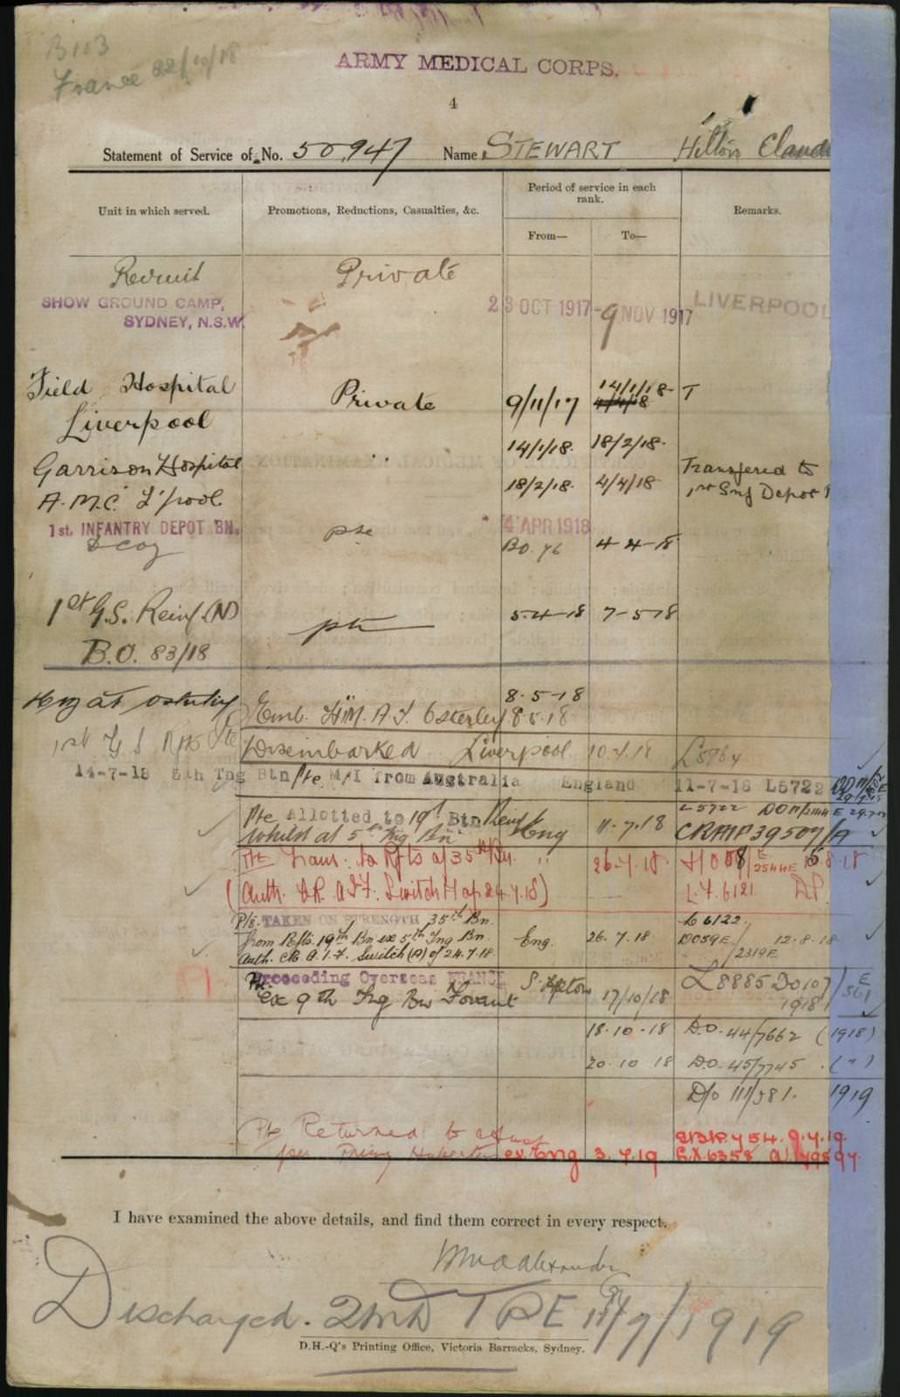 B103
France 22/10/18
ARMY MEDICAL CORPS.
4
Statement of Service of No. 50,947 Name STEWART Hilton Claude
Unit in which served. Promotions, Reductions, Casualties, &c. Period of service in each rank. Remarks.
From— To—
Recruit Private
SHOW GROUND CAMP, SYDNEY, N.S.W. 23 OCT 1917 -9 NOV 1917 LIVERPOOL
Field Hospital Private 9/11/17 14/1/18 T
Liverpool
14/1/18. 18/2/18.
Garrison Hospital 18/2/18. 4/4/18 Transfered to
A.M.C. L'pool 1st Inf Depot
1st. INFANTRY DEPOT BN. pte 4 APR 1918
D Coy BO. 76 4-4-18
1st G.S. Reinf (N) pte 5-4-18 7-5-18
B.O. 83/18
8-5-18
Emb. H.M.A.T. Osterley 8.5.18
Disembarked Liverpool 10.7.18
14-7-18 5th Tng Btn Pte M/I from Australia England 11-7-18 L5722
Pte Allotted to 19th Btn Reinf L5722
Whilst at 5th Tng Bn Eng 11.7.18 CRMP39507/A
Pte Trans. to Rfts of 35th Bn. " 26.7.18
(Auth. A.I.F. Switch of 24.7.18) 6121
Pte. TAKEN ON STRENGTH 35th Bn. L6122
from Rfts. 19th Bn ex 5th Tng Bn Eng. 26.7.18 DO59E/2319E 12-8-18
Auth. A.I.F. Switch (A) of 24.7.18
Pte. Proceeding Overseas FRANCE
ex 9th Tng Bn Fovant S'hpton 17/10/18 L8885 DO107/ 1918
18-10-18 D.O. 44/7662 (1918)
20-10-18 D.O. 45/7745 (")
D/o 111/381. 1919
Pte Returned to
per ex Eng 3.7.19 9.7.19
I have examined the above details, and find them correct in every respect.
Discharged. 2nd 7/1919
D.H.-Q's Printing Office, Victoria Barracks, Sydney.